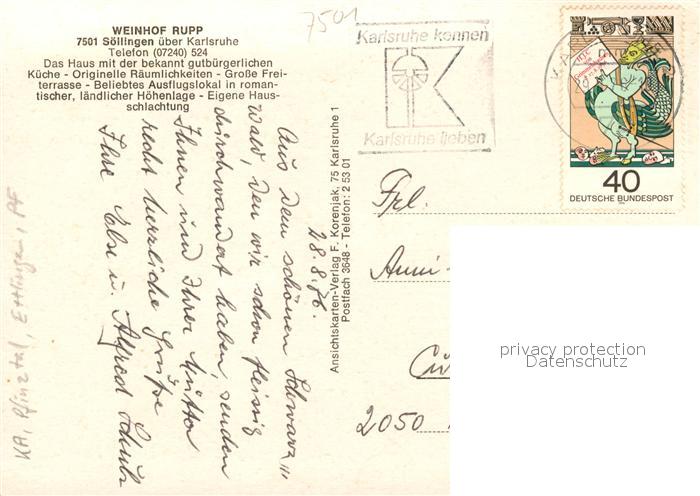 WEINHOF RUPP
7501 Söllingen über Karlsruhe
Telefon (07240) 524
Das Haus mit der bekannt gutbürgerlichen
Küche - Originelle Räumlichkeiten - Große Frei-
terrasse - Beliebtes Ausflugslokal in roman-
tischer, ländlicher Höhenlage - Eigene Haus-
schlachtung
7501
Karlsruhe kennen
Karlsruhe lieben
40
DEUTSCHE BUNDESPOST
Ansichtskarten-Verlag F. Korenjak, 75 Karlsruhe 1
Postfach 3648 - Telefon: 2 53 01
28.8.76.
Aus dem schönen Schwarz
wald, den wir schon fleissig
durchwandert haben, senden
Ihnen und Ihrer Mutter
recht herzliche Grüße
Ihre Else u. Alfred Schulz
Frl.
Anni
2050
privacy protection
Datenschutz
KA, Pfinztal, Ettlingen, PF